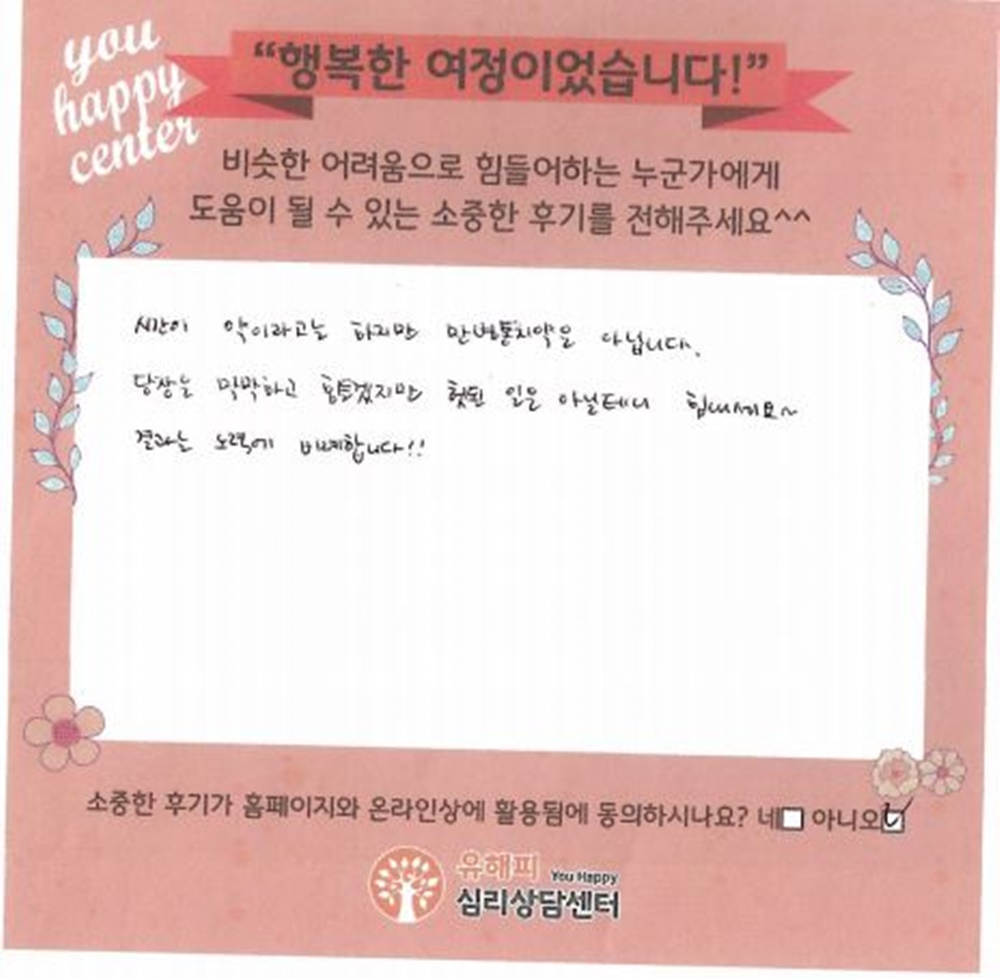 you
happy
center
“행복한 여정이었습니다!”
비슷한 어려움으로 힘들어하는 누군가에게
도움이 될 수 있는 소중한 후기를 전해주세요^^
시간이 약이라고는 하지만 만병통치약은 아닙니다.
당장은 막막하고 힘들겠지만 헛된 일은 아닐테니 힘내세요~
결과는 노력에 비례합니다!!
소중한 후기가 홈페이지와 온라인상에 활용됨에 동의하시나요? 네□ 아니오☑
유해피 You Happy
심리상담센터